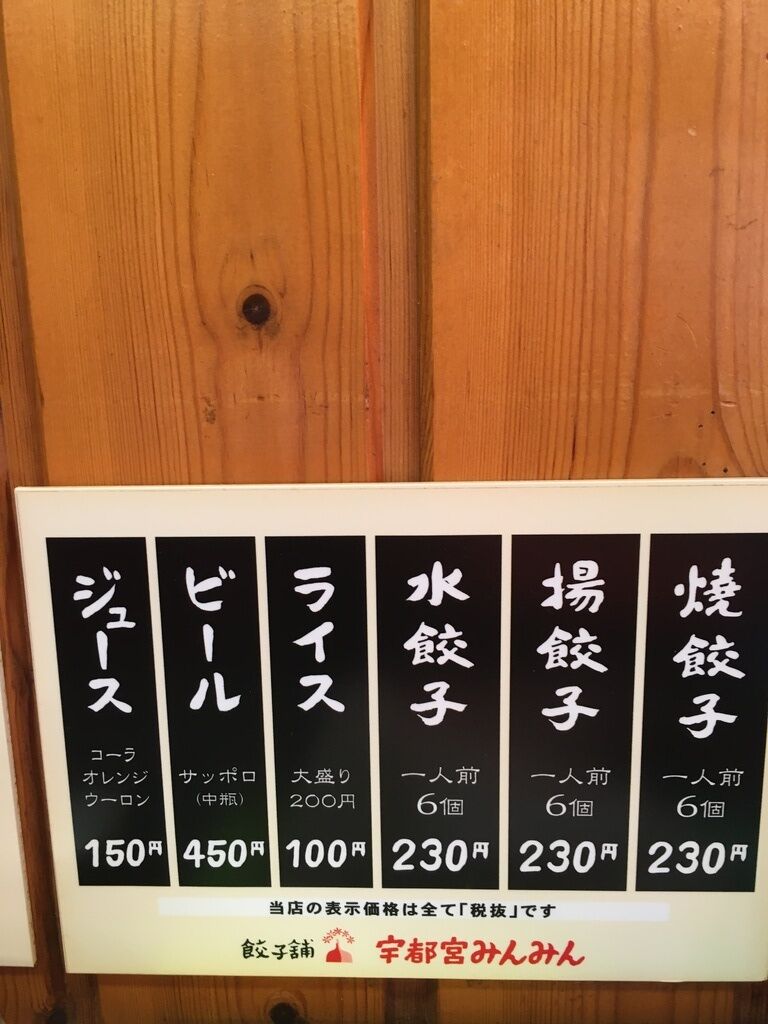 焼餃子
一人前
6個
230円
揚餃子
一人前
6個
230円
水餃子
一人前
6個
230円
ライス
大盛り
200円
100円
ビール
サッポロ
(中瓶)
450円
ジュース
コーラ
オレンジ
ウーロン
150円
当店の表示価格は全て「税抜」です
餃子舗 宇都宮みんみん